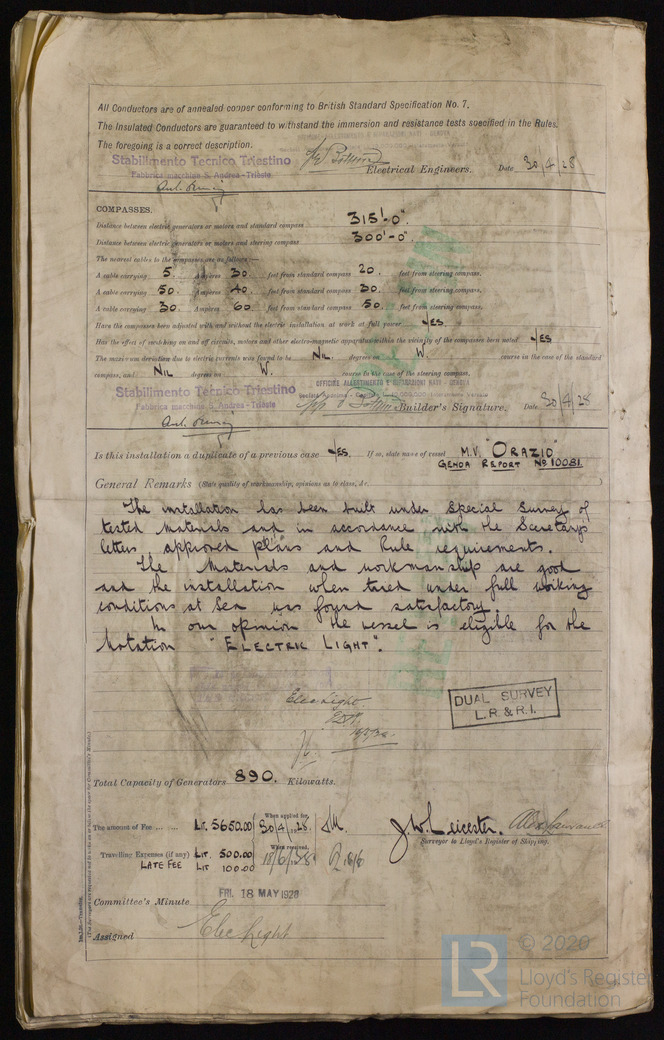 All Conductors are of annealed copper conforming to British Standard Specification No. 7.
The Insulated Conductors are guaranteed to withstand the immersion and resistance tests specified in the Rules.
The foregoing is a correct description.
Stabilimento Tecnico Triestino
Fabbrica macchine S. Andrea - Trieste
Electrical Engineers. Date 30/4/28
COMPASSES.
Distance between electric generators or motors and standard compass 315'-0".
Distance between electric generators or motors and steering compass 300'-0".
The nearest cables to the compasses are as follows:—
A cable carrying 5. Ampères 30 feet from standard compass 20. feet from steering compass.
A cable carrying 50. Ampères 40. feet from standard compass 30. feet from steering compass.
A cable carrying 30. Ampères 60 feet from standard compass 50. feet from steering compass.
Have the compasses been adjusted with and without the electric installation at work at full power YES
Has the effect of switching on and off circuits, motors and other electro-magnetic apparatus within the vicinity of the compasses been noted YES
The maximum deviation due to electric currents was found to be NIL degrees on W. course in the case of the standard
compass, and NIL degrees on W. course in the case of the steering compass.
Stabilimento Tecnico Triestino
Fabbrica macchine S. Andrea - Trieste
Builder's Signature. Date 30/4/28
Is this installation a duplicate of a previous case YES. If so, state name of vessel M.V. "ORAZIO"
GENOA REPORT No 10081.
General Remarks (State quality of workmanship, opinions as to class, &c.
The installation has been built under Special Survey of
tested Materials and in accordance with the Secretary's
letters, approved plans and Rule requirements.
The Materials and workmanship are good
and the installation when tried under full working
conditions at Sea was found satisfactory.
In our opinion the vessel is eligible for the
Notation "ELECTRIC LIGHT".
Elec Light
DUAL SURVEY
L.R. & R.I.
Total Capacity of Generators 890. Kilowatts.
The amount of Fee LIT. 5650.00 When applied for, 30/4/1928.
J. W. Leicester.
Surveyor to Lloyd's Register of Shipping.
Travelling Expenses (if any) LIT. 500.00 When received,
LATE FEE LIT 100.00
FRI. 18 MAY 1928
Committee's Minute
Assigned Elec Light
© 2020
Lloyd's Register
Foundation
LR